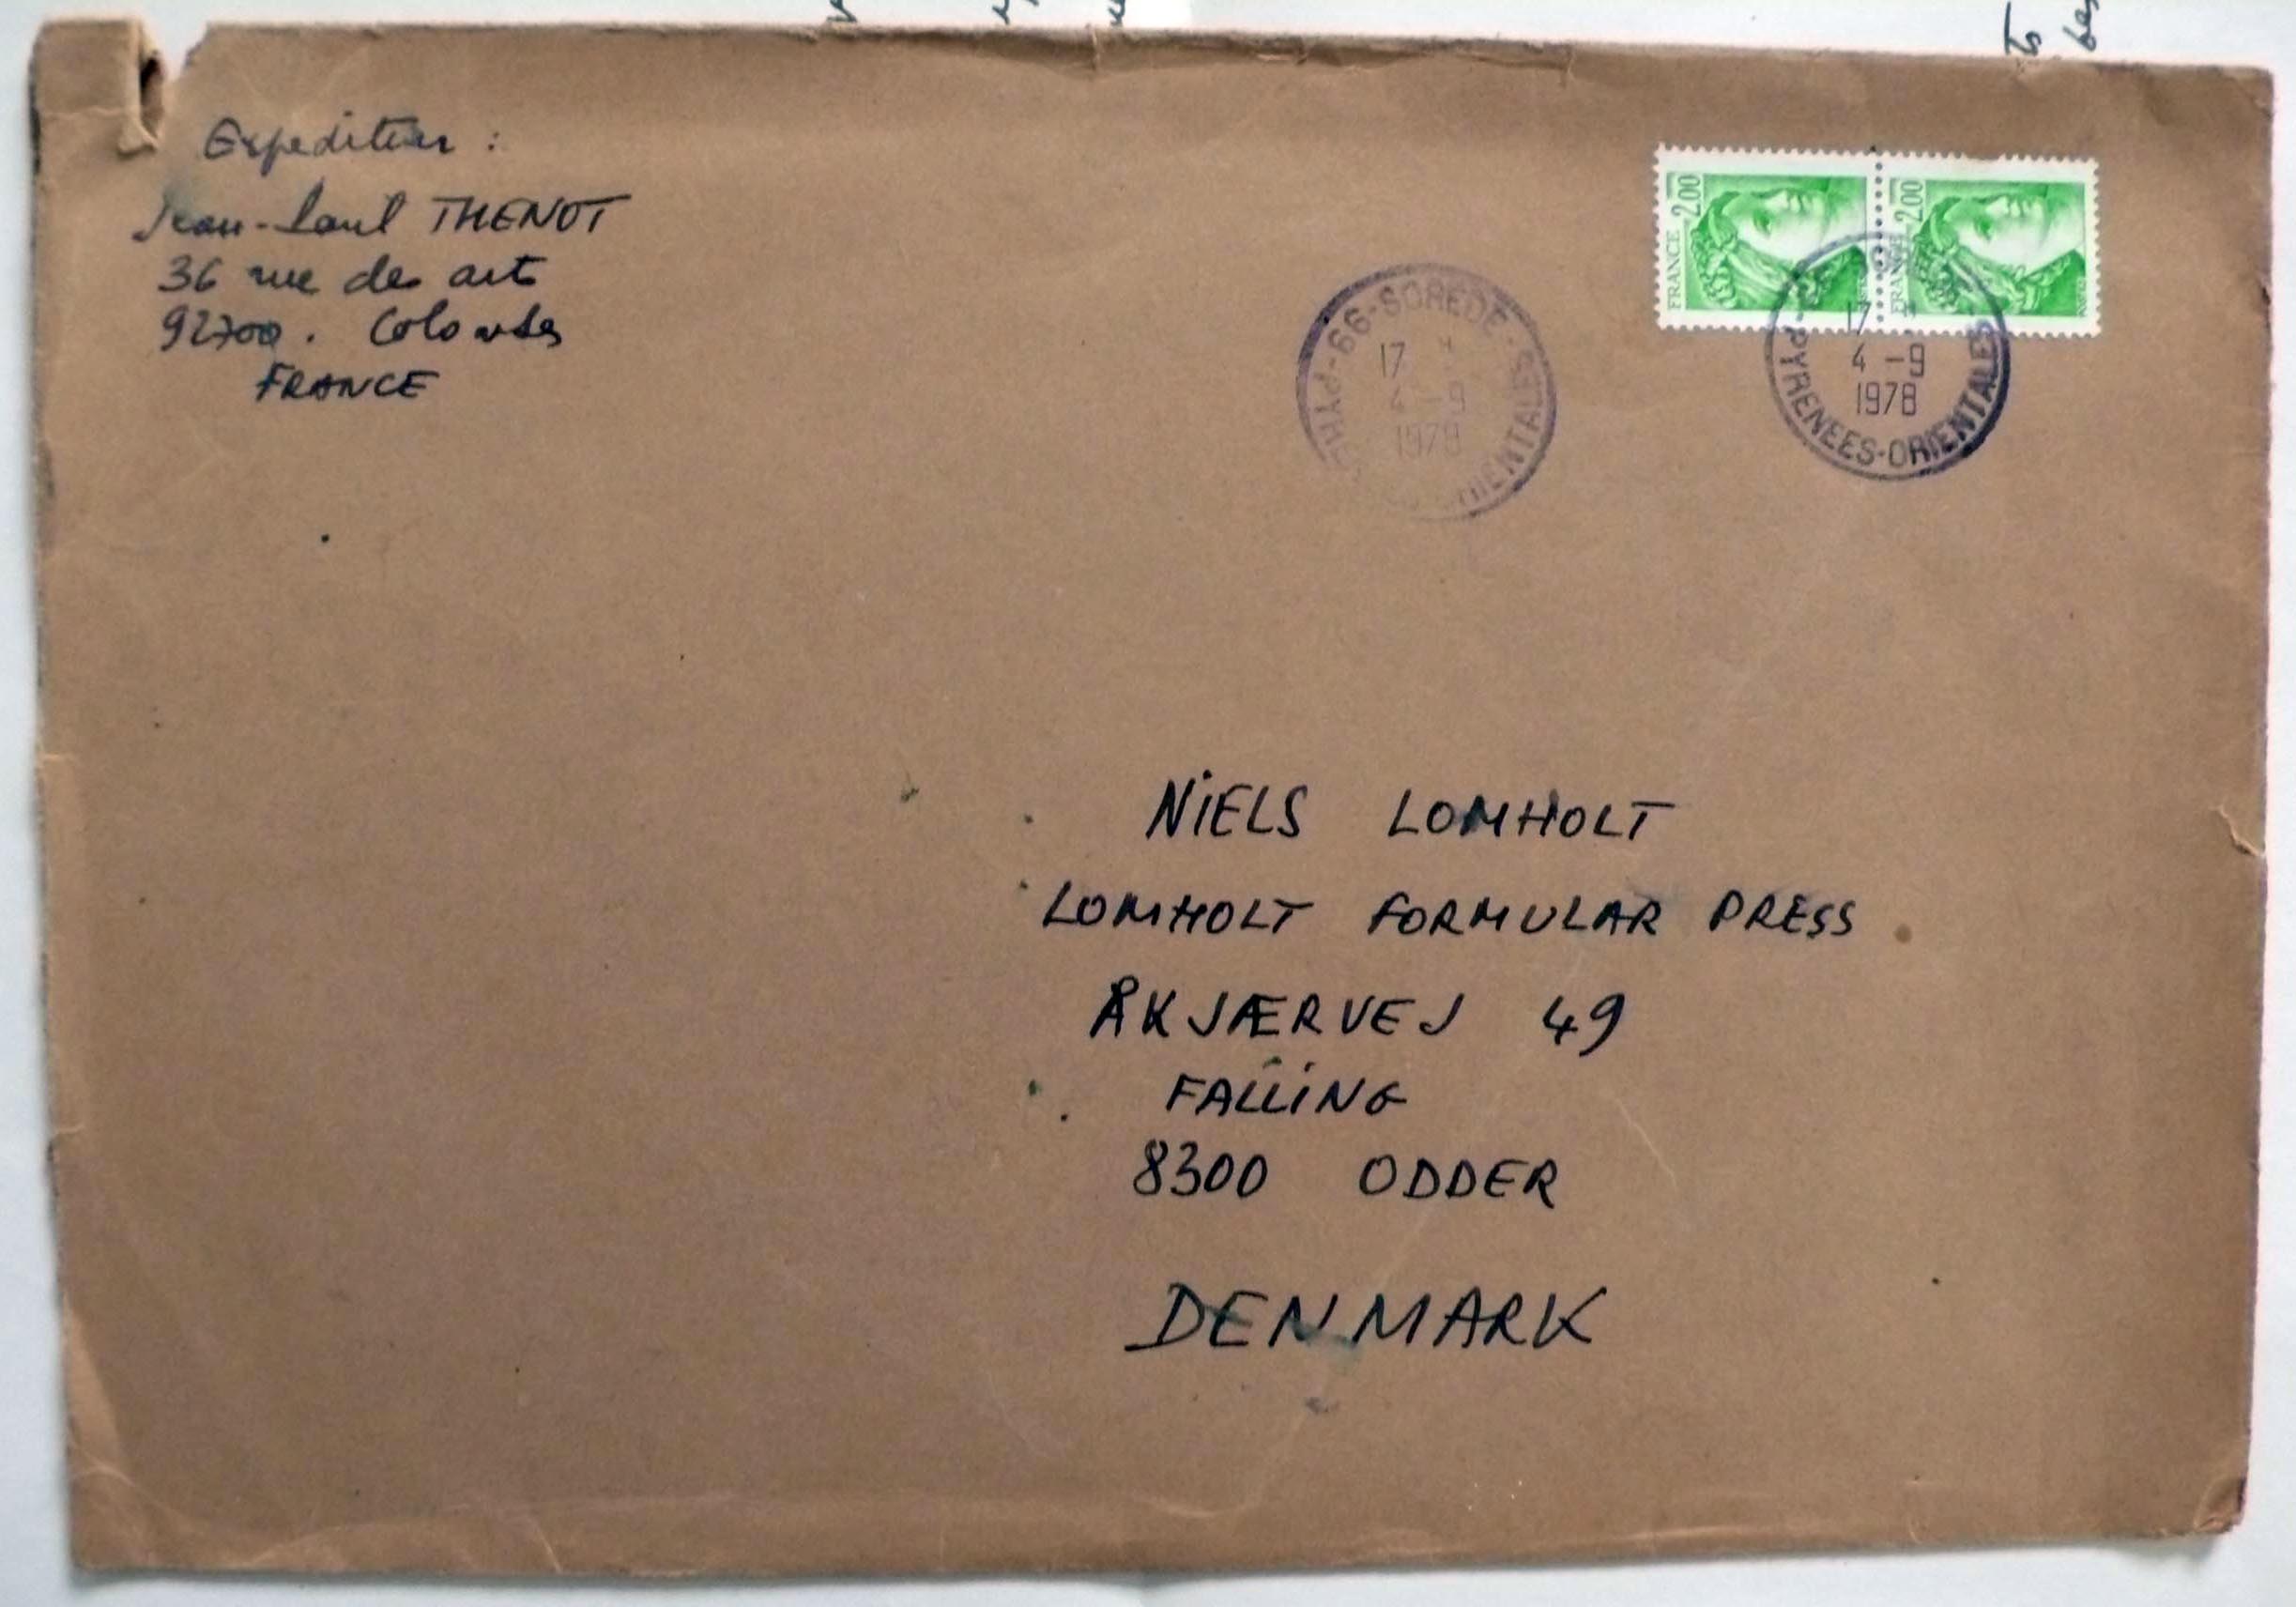 Expediteur :
Jean-Paul THENOT
36 rue des arts
92700. Colombes
FRANCE
FRANCE 2.00
FRANCE 2.00
66-SOREDE
17
4 -9
1978
PYRENEES-ORIENTALES
17
4 -9
1978
PYRENEES-ORIENTALES
NiELS LOMHOLT
LOMHOLT FORMULAR PRESS
ÅKJÆRVEJ 49
FALLiNG
8300 ODDER
DENMARK